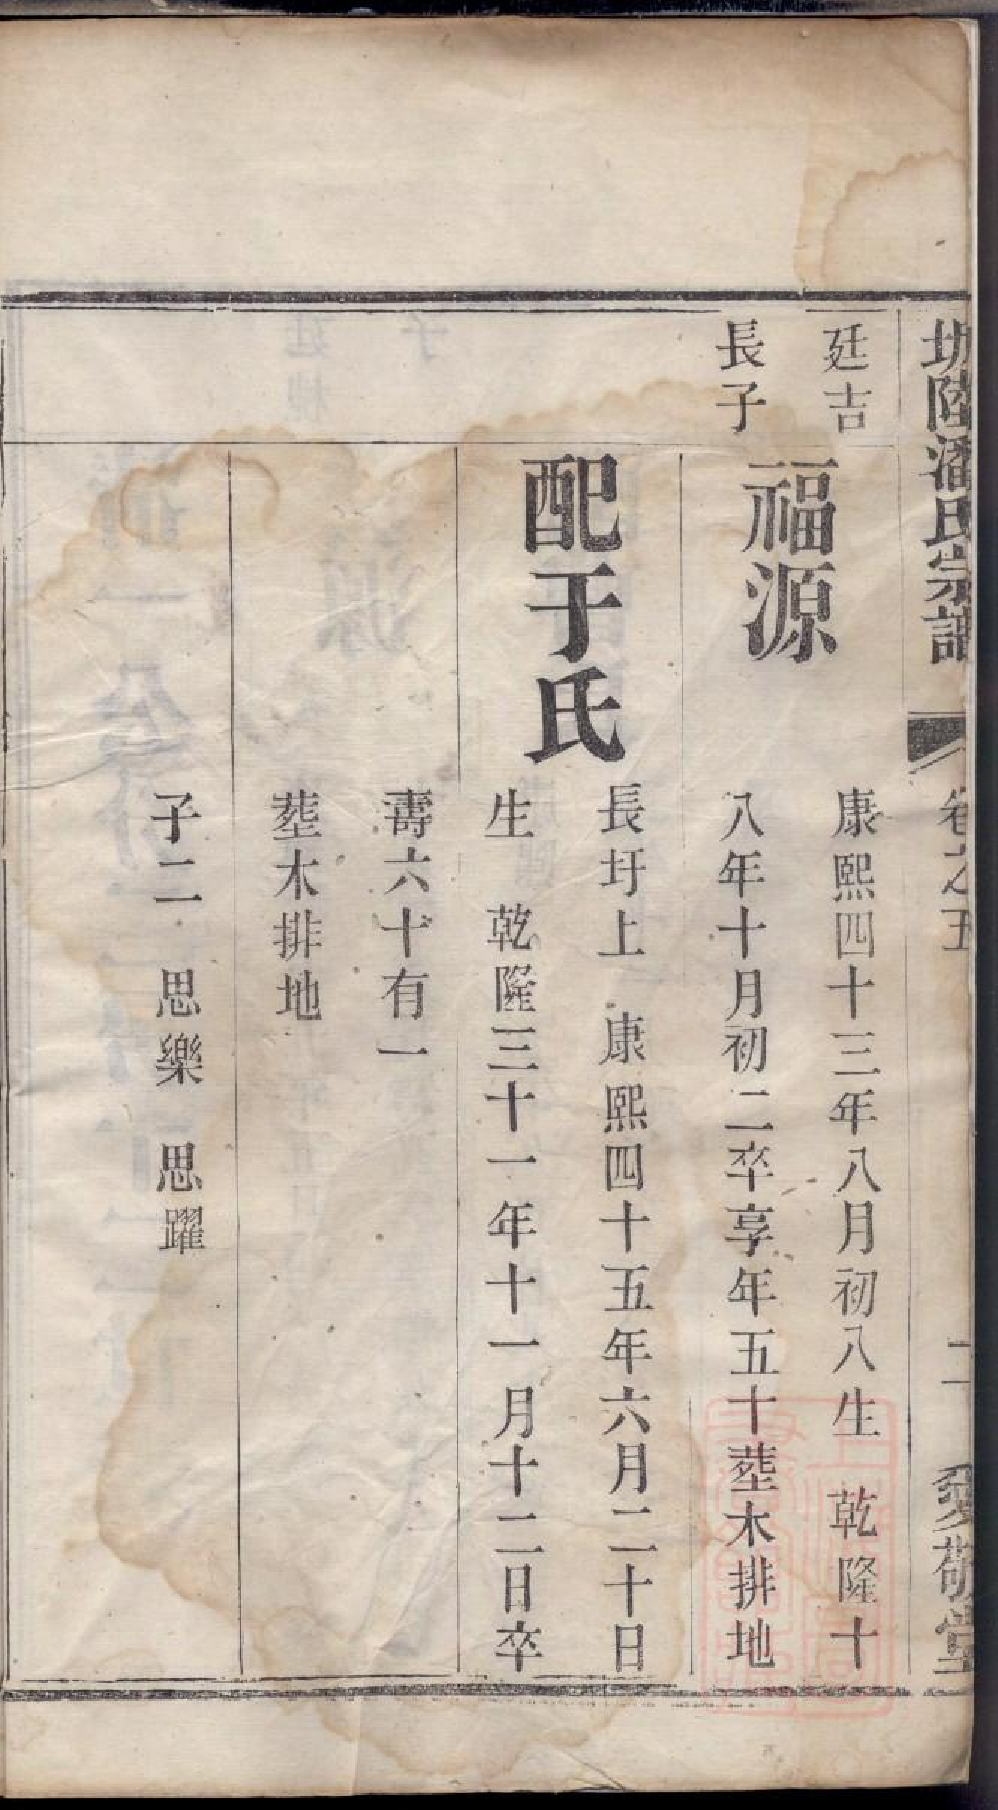 陸潘氏宗譜
卷之五
二
愛敬堂
廷吉
長子
福源
康熙四十三年八月初八生 乾隆十
八年十月初二卒享年五十塟木排地
配于氏
長圩上 康熙四十五年六月二十日
生 乾隆三十一年十一月十二日卒
壽六十有一
塟木排地
子二 思樂 思躍